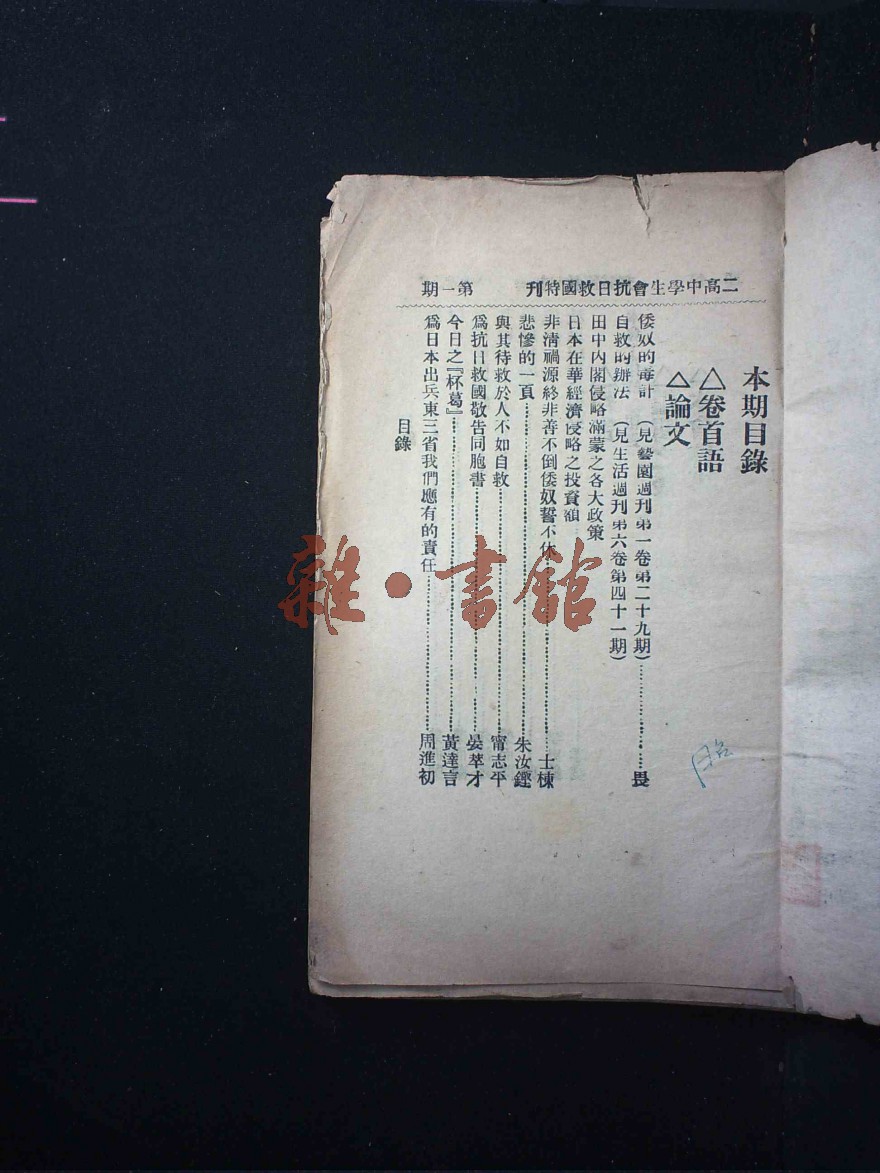 二高中學生會抗日救國特刊　第一期
本期目錄
△卷首語
△論文
倭奴的毒計　（見藝園週刊第一卷第二十九期）……………畏
自救的辦法　（見生活週刊第六卷第四十一期）
田中內閣侵略滿蒙之各大政策
日本在華經濟侵略之投資額
非清禍源終非善不倒倭奴誓不休……………士棟
悲慘的一頁……………朱汝鏗
與其待救於人不如自救……………甯志平
爲抗日救國敬告同胞書……………晏萃才
今日之『杯葛』……………黃達言
爲日本出兵東三省我們應有的責任……………周進初
目錄
雜·書館